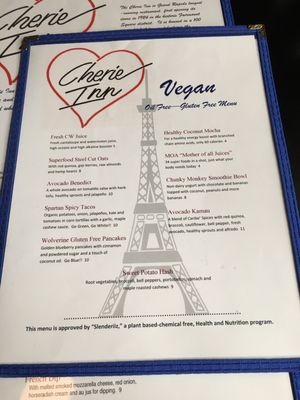 The Cherie Inn in Grand Rapids longest
running restaurant, first opening its
doors in 1924 in the historic Fairmount
Square district. It is housed in a 100
Cherie
Inn
Vegan
Oil Free—Gluten Free Menu
Fresh CW Juice
Fresh cantaloupe and watermelon juice,
high octane and high alkaline booster 5
Superfood Steel Cut Oats
With red quinoa, goji berries, raw almonds
and hemp hearts 8
Avocado Benedict
A whole avocado on tomatillo salsa with herb
tofu, healthy sprouts and jalapeño 10
Spartan Spicy Tacos
Organic potatoes, onion, jalapeños, kale and
tomatoes in corn tortillas with a garlic, maple
cashew sauce. Go Green, Go White!! 10
Wolverine Gluten Free Pancakes
Golden blueberry pancakes with cinnamon
and powdered sugar and a touch of
coconut oil. Go Blue!! 10
Healthy Coconut Mocha
For a healthy energy boost with branched
chain amino acids, only 60 calories 4
MOA "Mother of all Juices"
34 super foods in a shot, just what your
body needs today 4
Chunky Monkey Smoothie Bowl
Non-dairy yogurt with chocolate and bananas
topped with coconut, peanuts and more
bananas 8
Avocado Kamata
A blend of Cardia' Spices with red quinoa,
broccoli, cauliflower, bell pepper, fresh
avocado, healthy sprouts and alfredo 11
Sweet Potato Hash
Root vegetables, broccoli, bell peppers, portobellos, spinach and
maple roasted cashews 9
This menu is approved by "Slenderiiz," a plant based-chemical free, Health and Nutrition program.
French Dip
With malted smoked mozzarella cheese, red onion,
horseradish cream and au jus for dipping. 9